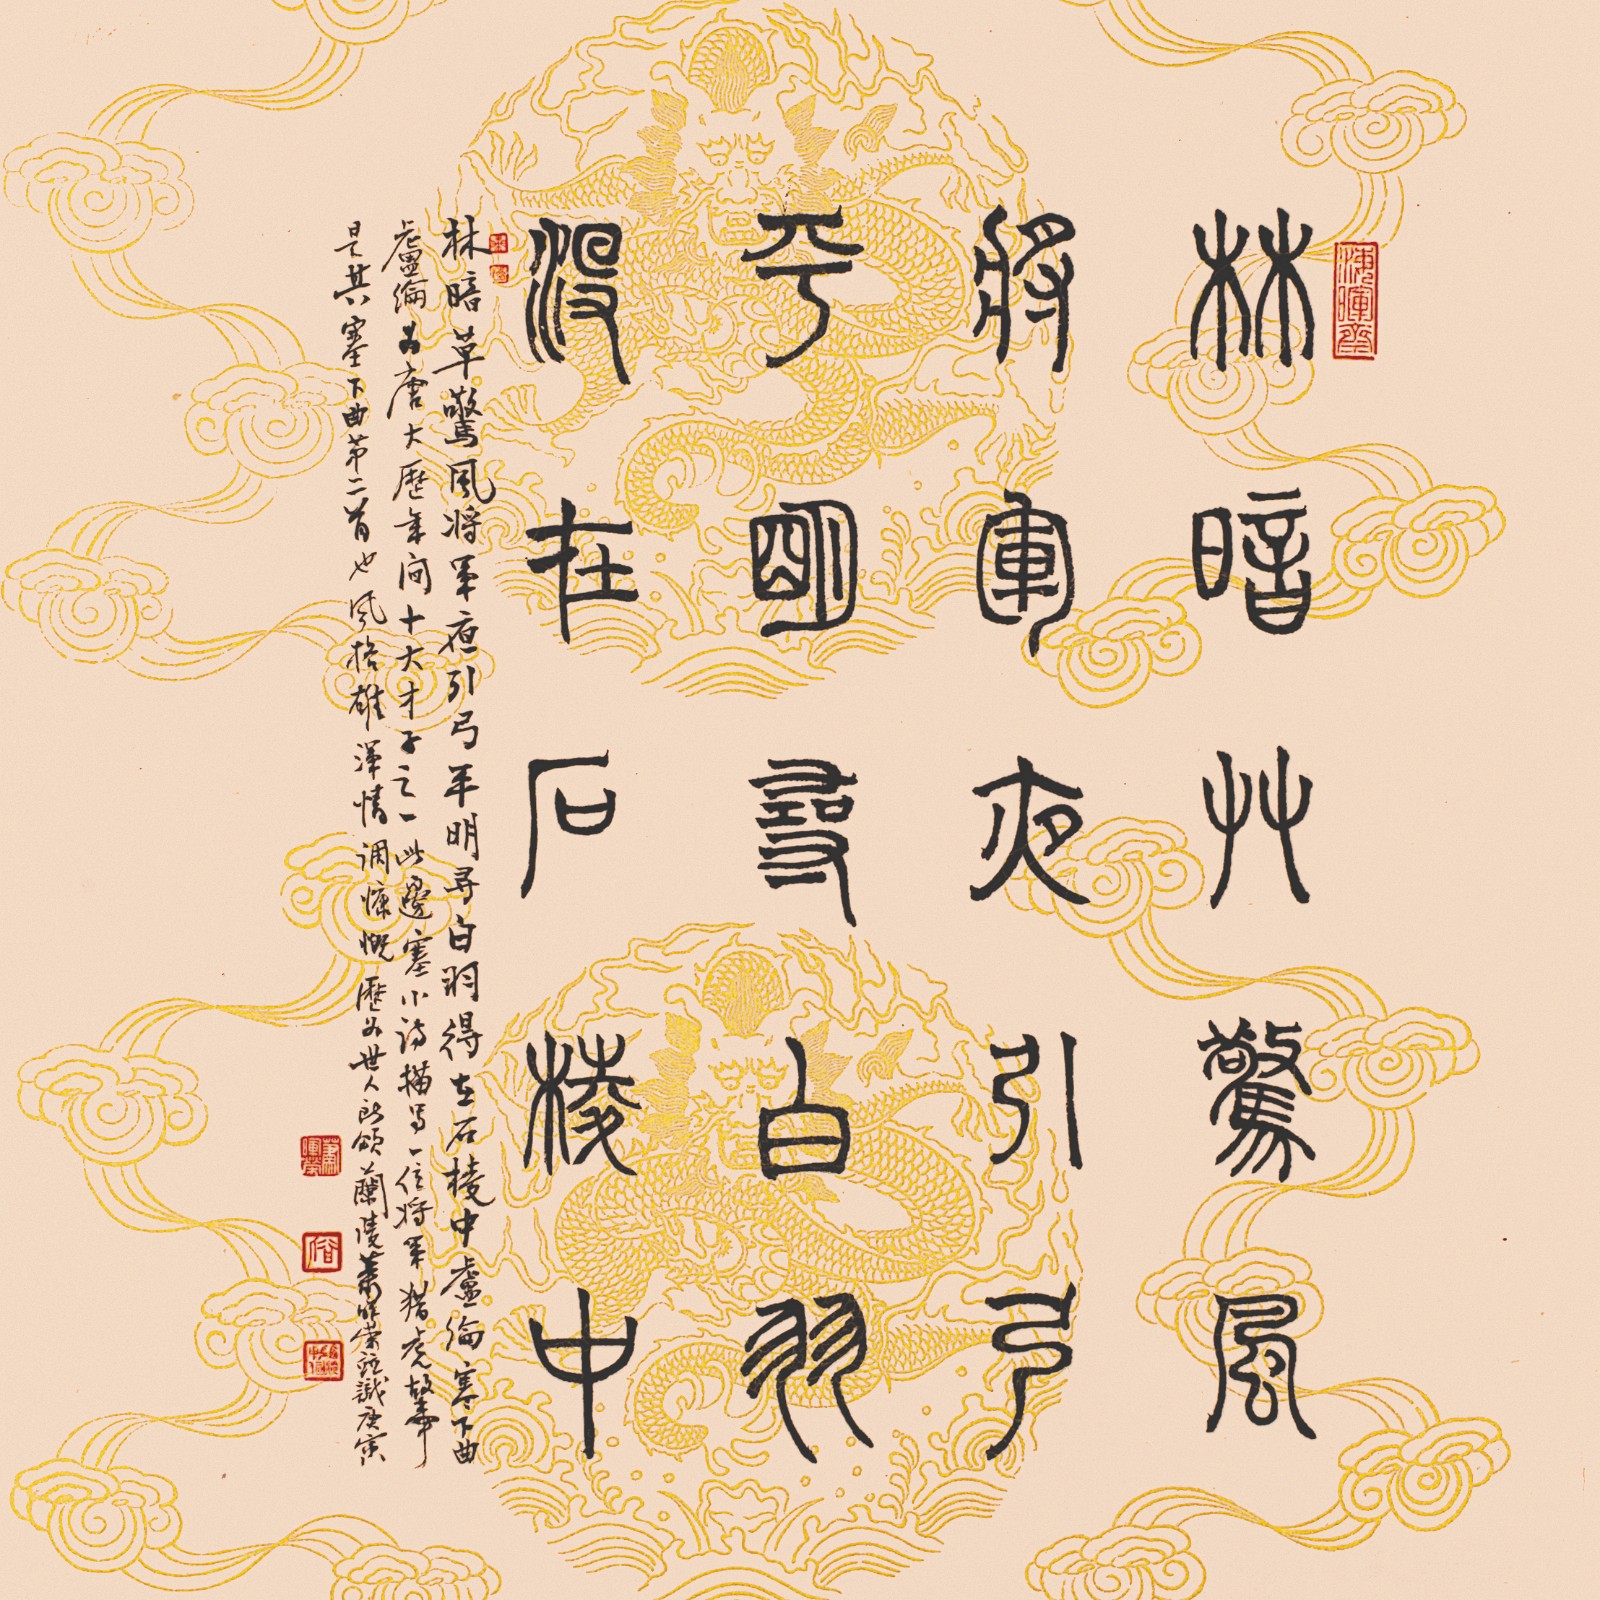 林暗艸驚風
將軍夜引弓
平明尋白羽
没在石棱中
林暗草驚風将軍夜引弓平明尋白羽得在石棱中盧綸塞下曲
盧綸为唐大歷年间十大才子之一此邊塞小诗描写一位将軍猎虎故事
是其塞下曲第二首也风格雄渾情调慷慨歷为世人所颂蘭陵萧暉荣並識庚寅
蕭暉榮